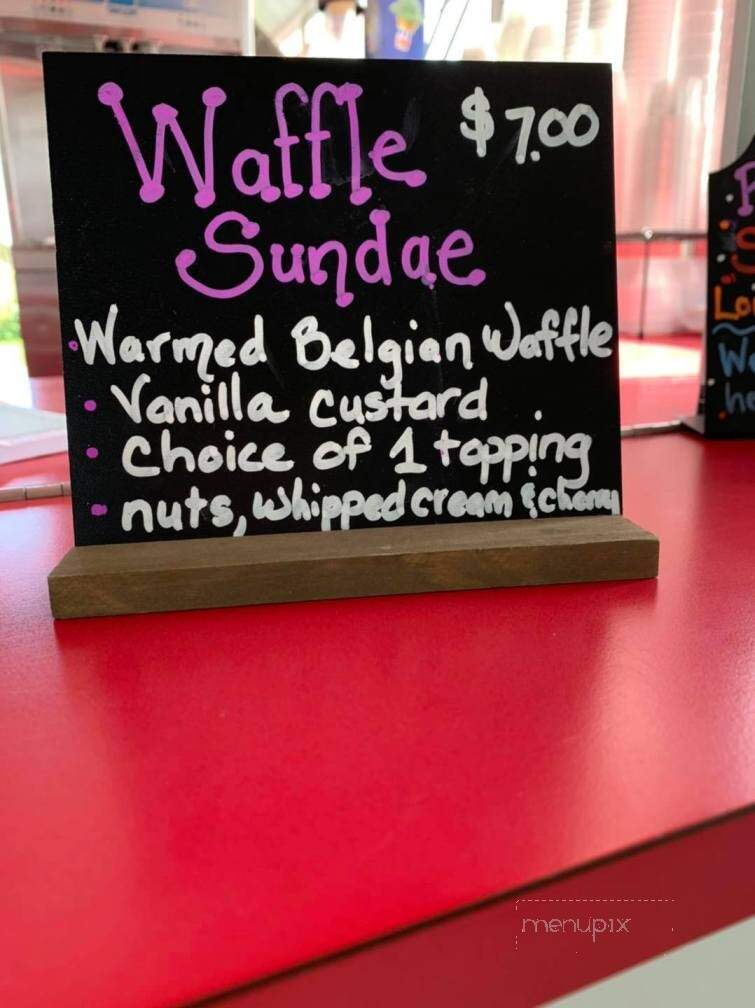 Waffle $7.00
Sundae
•Warmed Belgian Waffle
• Vanilla custard
• Choice of 1 topping
• nuts, whipped cream & cherry
menupix